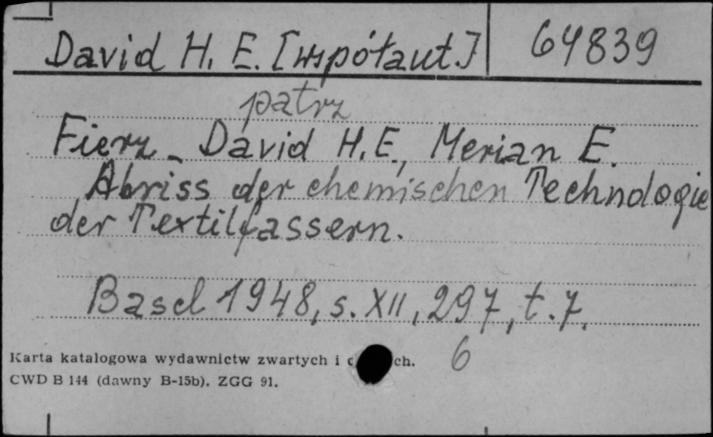 David H. E. [współaut.] 64839
patrz
Fierz - David H.E., Merian E.
Abriss der chemischen Technologie
der Textilfassern.
Basel 1948, s. XII, 297, t. 7.
6
Karta katalogowa wydawnictw zwartych i ch.
CWD B 144 (dawny B-15b). ZGG 91.